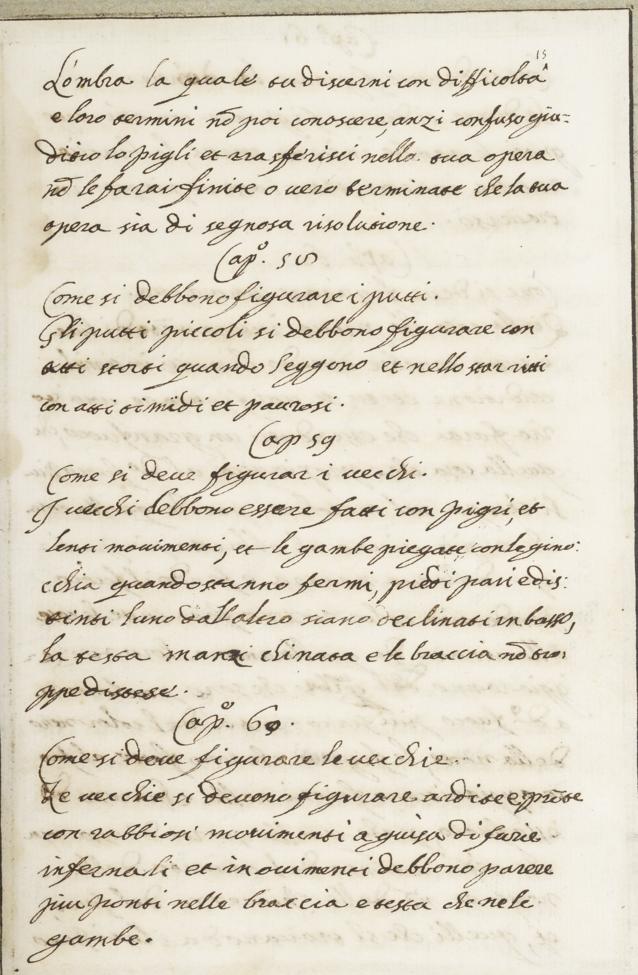 15
L'ombra la quale tu discerni con difficolta
e loro termini nō poi conoscere, anzi confuso giu=
ditio lo pigli et trasferisci nello tua opera
nō le farai finite o vero terminate che la tua
opera sia di segnosa risolutione.
Capº. 58
Come si debbono figurare i putti.
Gli putti piccoli si debbono figurare con
atti storti quando seggono et nello star ritti
con atti timidi et paurosi.
Cap 59
Come si deve figurar i vecchi.
I vecchi debbono essere fatti con pigri, et
lenti movimenti, et le gambe piegate con le gino:
cchia quando stanno fermi, piedi pari e dis:
tinti luno dall'altro siano declinati in basso,
la testa chinata e le braccia nō tro:
ppe distese.
Capº. 60.
Come si deve figurare le vecchie.
Le vecchie si devono figurare ardite e prōte
con rabbiosi movimenti a guisa di furie
infernali et i movimenti debbono parere
piu pronti nelle braccia e testa che nele
gambe.